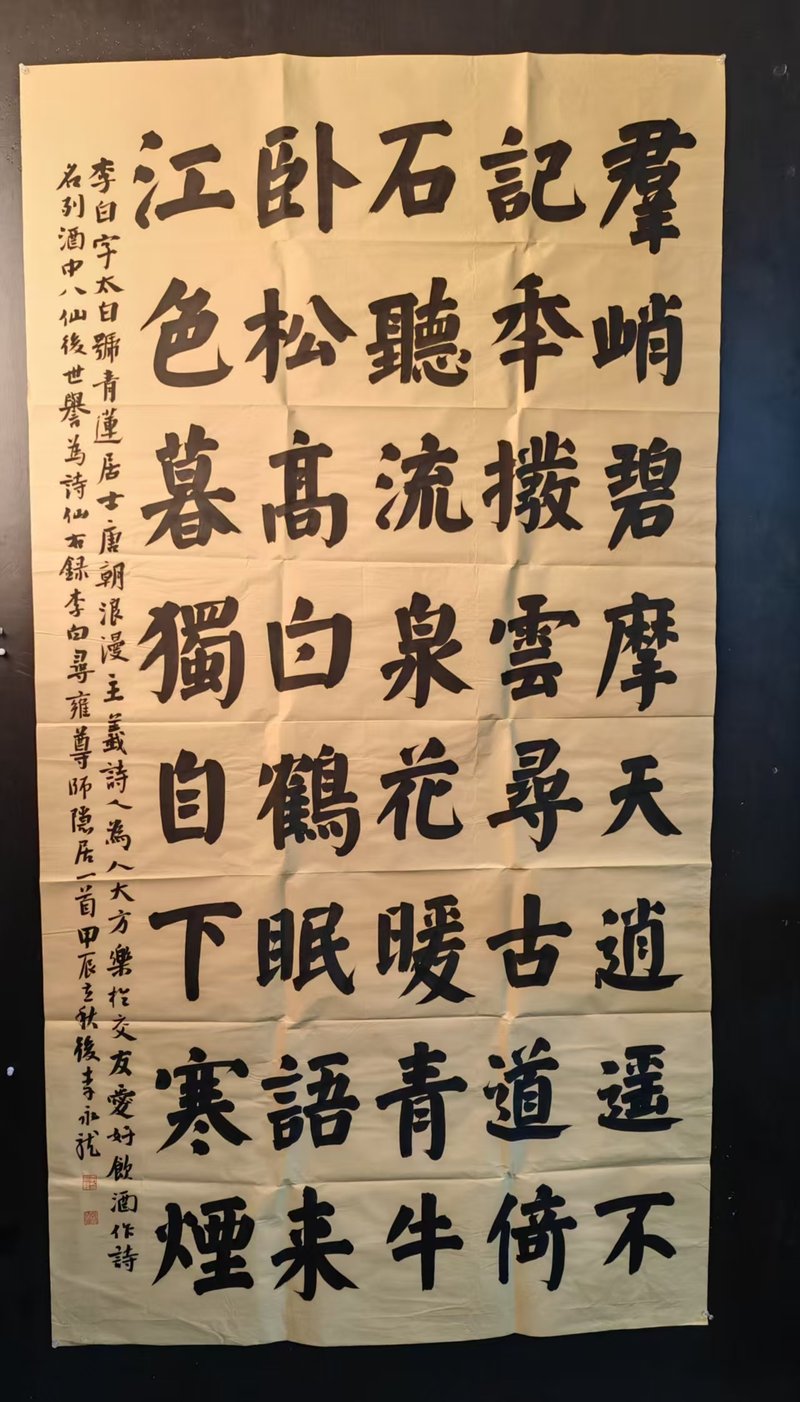 羣峭碧摩天逍遥不
記秊撥雲尋古道倚
石聽流泉花暖青牛
卧松高白鶴眠語来
江色暮獨自下寒煙
李白字太白號青蓮居士唐朝浪漫主義詩人為人大方樂於交友愛好飲酒作詩
名列酒中八仙後世譽為詩仙右録李白尋雍尊師隐居一首甲辰立秋後李永龍